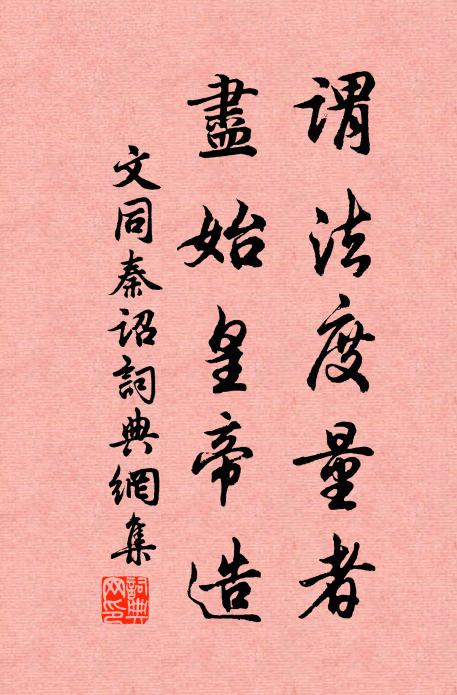 謂法度量者
盡始皇帝造
文同秦詔詞典網集
詞典網印